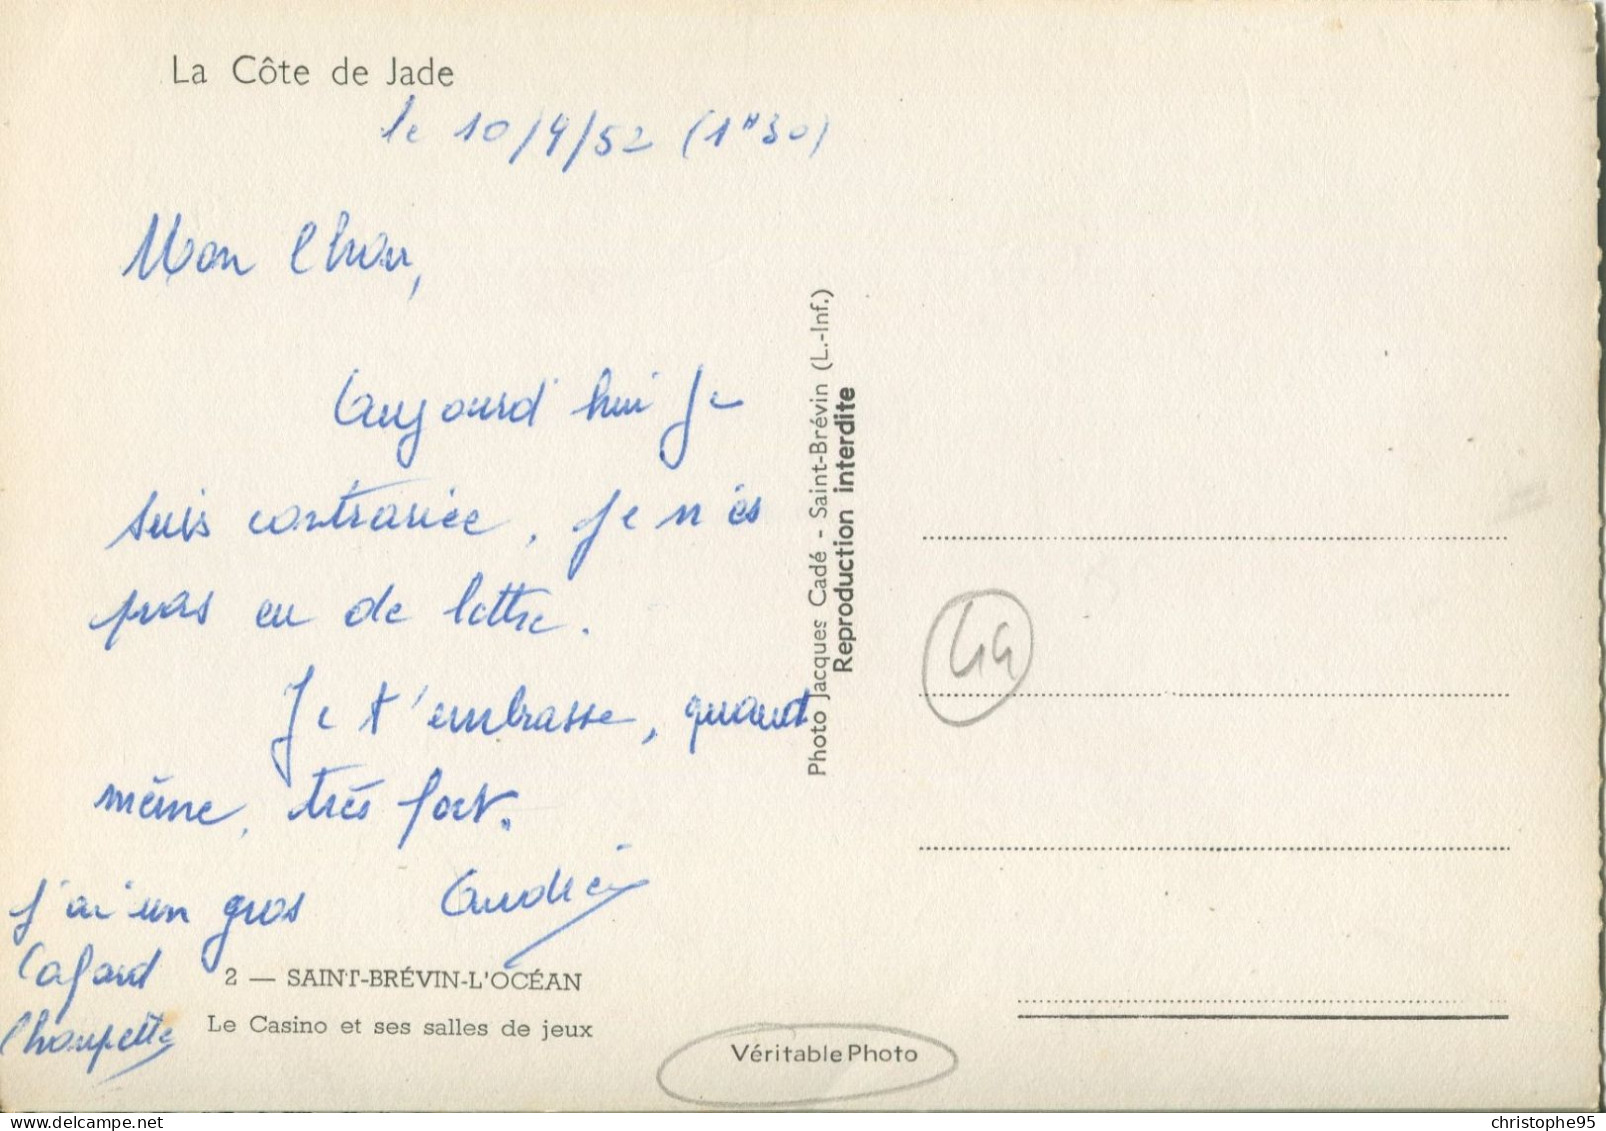 La Côte de Jade
le 10/9/52 (1H30)
Mon Chou,
Aujourd'hui je
suis contrariée, je n'es
pas eu de lettre.
Je t'embrasse, quand
même, très fort.
Andrée
J'ai un gros
Cafard
Choupette
2 — SAINT-BRÉVIN-L'OCÉAN
Le Casino et ses salles de jeux
Photo Jacques Cadé - Saint-Brévin (L.-Inf.)
Reproduction interdite
44
Véritable Photo
christophe95